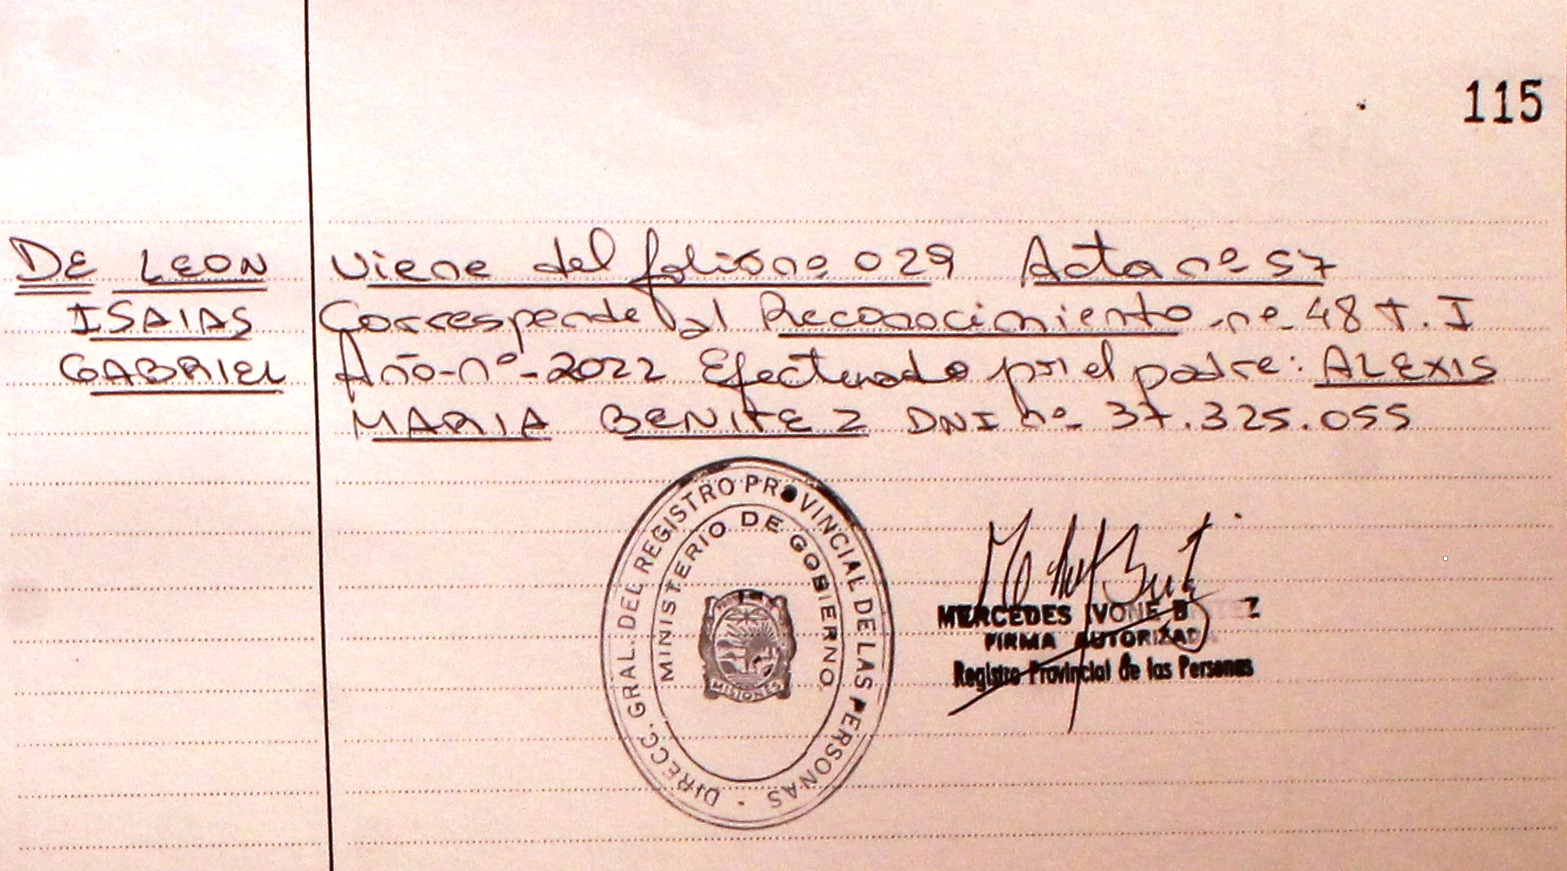 115
DE LEON
ISAIAS
GABRIEL
Viene del folio nº 029 Acta nº 57
Corresponde al Reconocimiento nº 48 T. I
Año-nº-2022 Efectuado por el padre: ALEXIS
MARIA BENITEZ DNI nº 37.325.055
DIRECC. GRAL. DEL REGISTRO PROVINCIAL DE LAS PERSONAS
MINISTERIO DE GOBIERNO
MISIONES
MERCEDES IVONE
FIRMA AUTORIZADA
Registro Provincial de las Personas